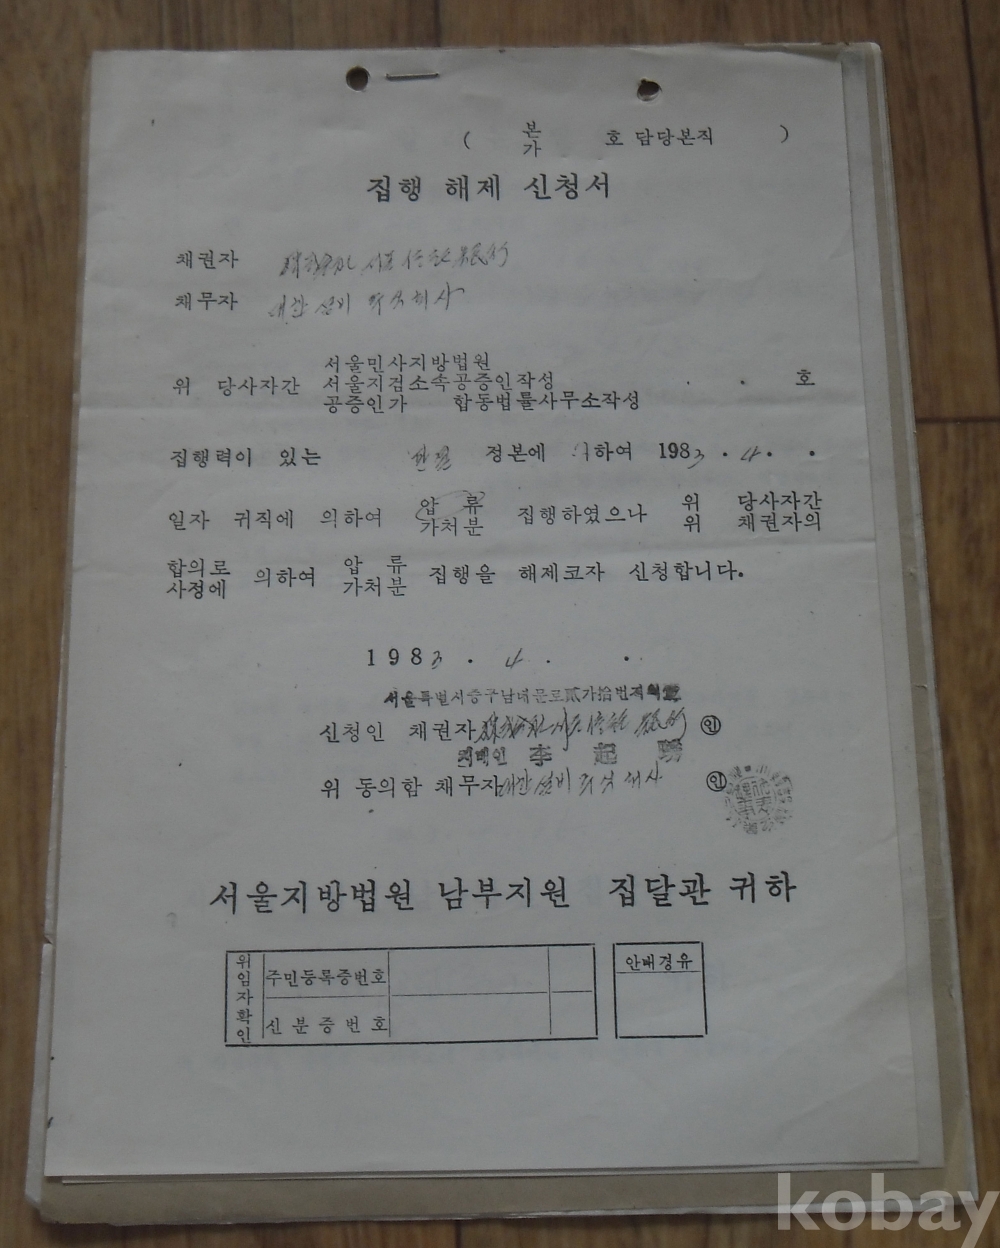 ( 본
가 호 담당본직 )
집행 해제 신청서
채권자 株式會社 서울信託銀行
채무자 대한설비주식회사
서울민사지방법원
위 당사자간 서울지검소속공증인작성 . . 호
공증인가 합동법률사무소작성
집행력이 있는 정본에 의하여 1983 . 4 . .
일자 귀직에 의하여 압류 집행하였으나 위 당사자간
가처분 위 채권자의
합의로 의하여 압류 집행을 해제코자 신청합니다.
사정에 가처분
1983 . 4 . .
서울특별시중구남대문로貳가拾번지의壹
신청인 채권자 株式會社 서울信託銀行 인
지배인 李 起
위 동의함 채무자 대한설비주식회사 인
서울지방법원 남부지원 집달관 귀하
위임자확인
주민등록증번호
신분증번호
안배경유
kobay